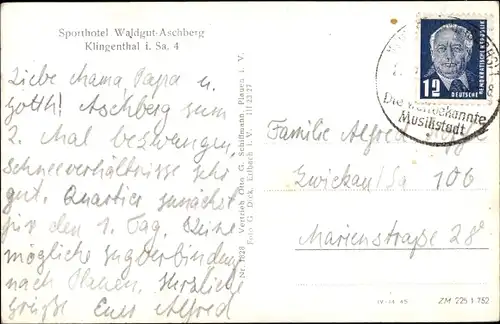 Sporthotel Waldgut-Aschberg
Klingenthal i. Sa. 4
Liebe Mama, Papa u.
Gotth! Aschberg zum
2. Mal bezwungen,
Schneeverhältnisse sehr
gut. Quartier zunächst
für den 1. Tag. Keine
mögliche Zugverbindung
nach Plauen. Herzliche
Grüße Euer Alfred
Nr. 1828 Vertrieb Otto G. Schiffmann, Plauen i. V.
Foto G. Dick, Erlbach i. V.
12
DEUTSCHE
DEMOKRATISCHE REPUBLIK
Die weltbekannte
Musikstadt
Familie Alfred
Zwickau/Sa 106
Marienstraße 28
ZM 225 1 752